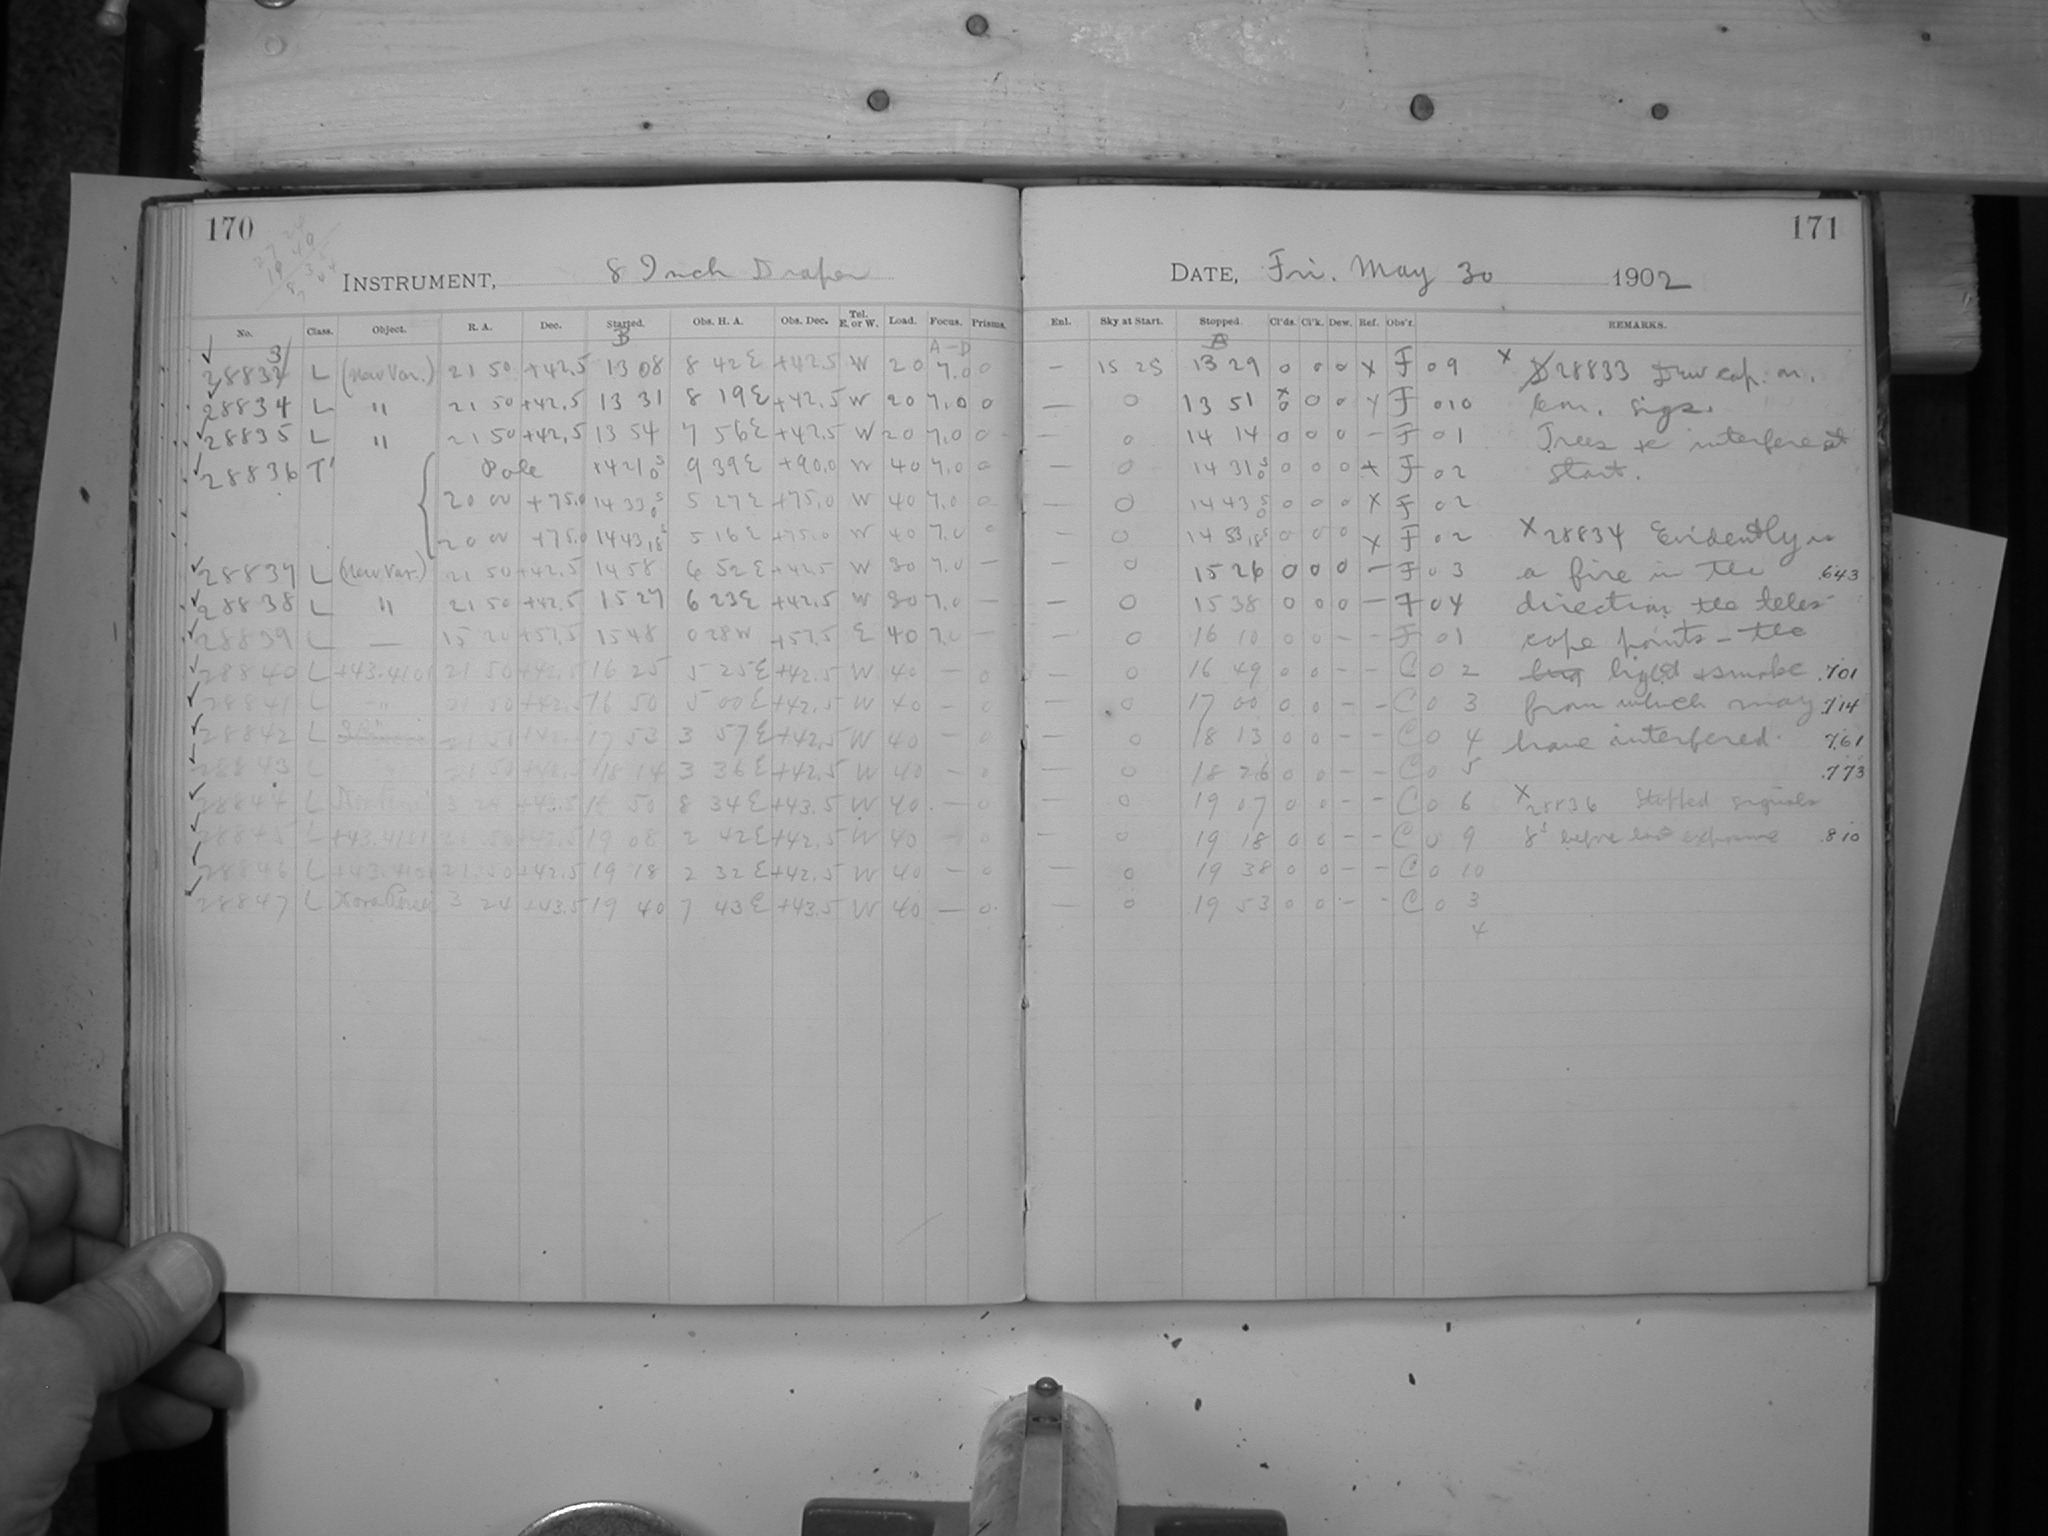 170
INSTRUMENT, 8 Inch Draper
No. Class. Object. R. A. Dec. Started. Obs. H. A. Obs. Dec. Tel. E. or W. Load. Focus. Prisms.
B A-D
28833 L (New Var.) 21 50 +42.5 13 08 8 42 E +42.5 W 20 7.0 0
28834 L " 21 50 +42.5 13 31 8 19 E +42.5 W 20 7.0 0
28835 L " 21 50 +42.5 13 54 7 56 E +42.5 W 20 7.0 0
28836 T' Pole 14 21 0s 9 39 E +90.0 W 40 7.0 0
20 00 +75.0 14 33 0s 5 27 E +75.0 W 40 7.0 0
20 00 +75.0 14 43 18s 5 16 E +75.0 W 40 7.0 0
28837 L (New Var.) 21 50 +42.5 14 58 6 52 E +42.5 W 30 7.0 —
28838 L " 21 50 +42.5 15 27 6 23 E +42.5 W 30 7.0 —
28839 L — 15 20 +57.5 15 48 0 28 W +57.5 E 40 7.0 —
28840 L +43.4101 21 50 +42.5 16 25 5 25 E +42.5 W 40 — 0
28841 L " 21 50 +42.5 16 50 5 00 E +42.5 W 40 — 0
28842 L 21 50 +42.5 17 53 3 57 E +42.5 W 40 — 0
28843 L " 21 50 +42.5 18 14 3 36 E +42.5 W 40 — 0
28844 L Nova Persei 3 24 +43.5 18 50 8 34 E +43.5 W 40 — 0
28845 L +43.4101 21 50 +42.5 19 08 2 42 E +42.5 W 40 — 0
28846 L +43.4101 21 50 +42.5 19 18 2 32 E +42.5 W 40 — 0
28847 L Nova Persei 3 24 +43.5 19 40 7 43 E +43.5 W 40 — 0
171
DATE, Fri. May 30 1902
Enl. Sky at Start. Stopped. Cl'ds. Cl'k. Dew. Ref. Obs'r. REMARKS.
— 15 25 13 29 0 0 0 x F 09 x 28833 Dew cap. on.
— 0 13 51 x0 0 0 x F 010 Com. sigs.
— 0 14 14 0 0 0 — F 01 Trees interfere at
— 0 14 31 0s 0 0 0 x F 02 start.
— 0 14 43 0s 0 0 0 x F 02
— 0 14 53 18s 0 0 0 x F 02 x 28834 Evidently is
— 0 15 26 0 0 0 — F 03 a fire in the .643
— 0 15 38 0 0 0 — F 04 direction the teles-
— 0 16 10 0 0 — — F 01 cope points — the
— 0 16 49 0 0 — — C 0 2 light + smoke .701
— 0 17 00 0 0 — — C 0 3 from which may .714
— 0 18 13 0 0 — — C 0 4 have interfered. .761
— 0 18 26 0 0 — — C 0 5 .773
— 0 19 07 0 0 — — C 0 6 x 28836 Stopped signals
— 0 19 18 0 0 — — C 0 9 8s before last exposure .810
— 0 19 38 0 0 — — C 0 10
— 0 19 53 0 0 — — C 0 3
4